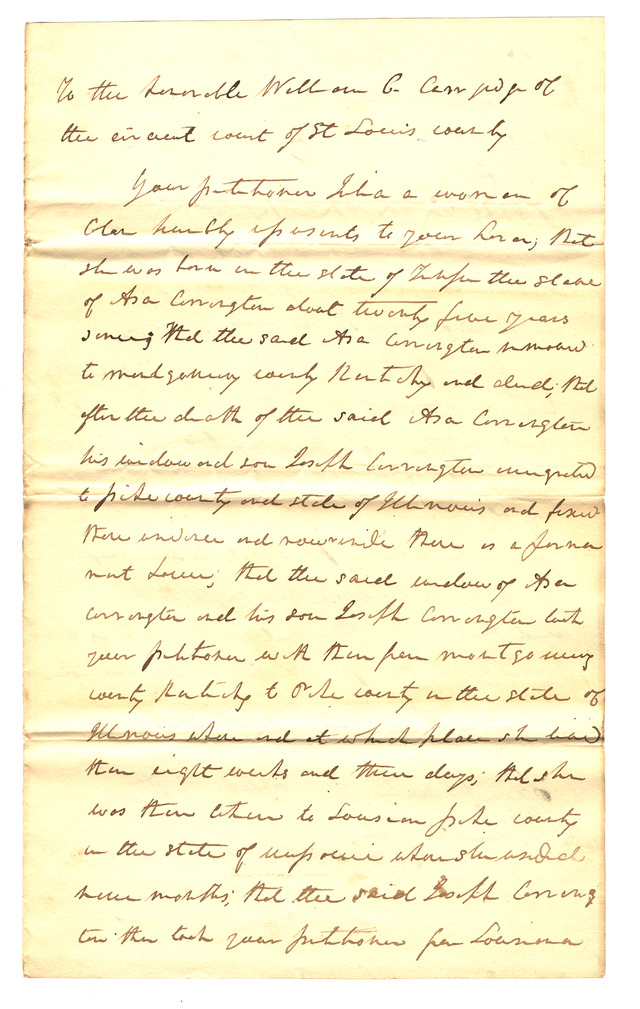 To the honorable William C Carr judge of
the circuit court of St Louis county
Your petitioner Julia a woman of
Color humbly represents to your honor, that
she was born in the state of the slave
of Asa Carrington about twenty five years
since; that the said Asa Carrington removed
to montgomery county Kentucky and died; that
after the death of the said Asa Carrington
his widow and son Joseph Carrington emigrated
to pike county and state of Illinois and fixed
there and now reside there as a
; that the said widow of Asa
Carrington and his son Joseph Carrington took
your petitioner with them from montgomery
county Kentucky to Pike county in the state of
Illinois where and at which place she lived
then eight weeks and three days; that she
was then taken to Louisian pike county
in the state of missouri where she resided
nine months; that the said Joseph Carring
ton then took your petitioner from Louisiana